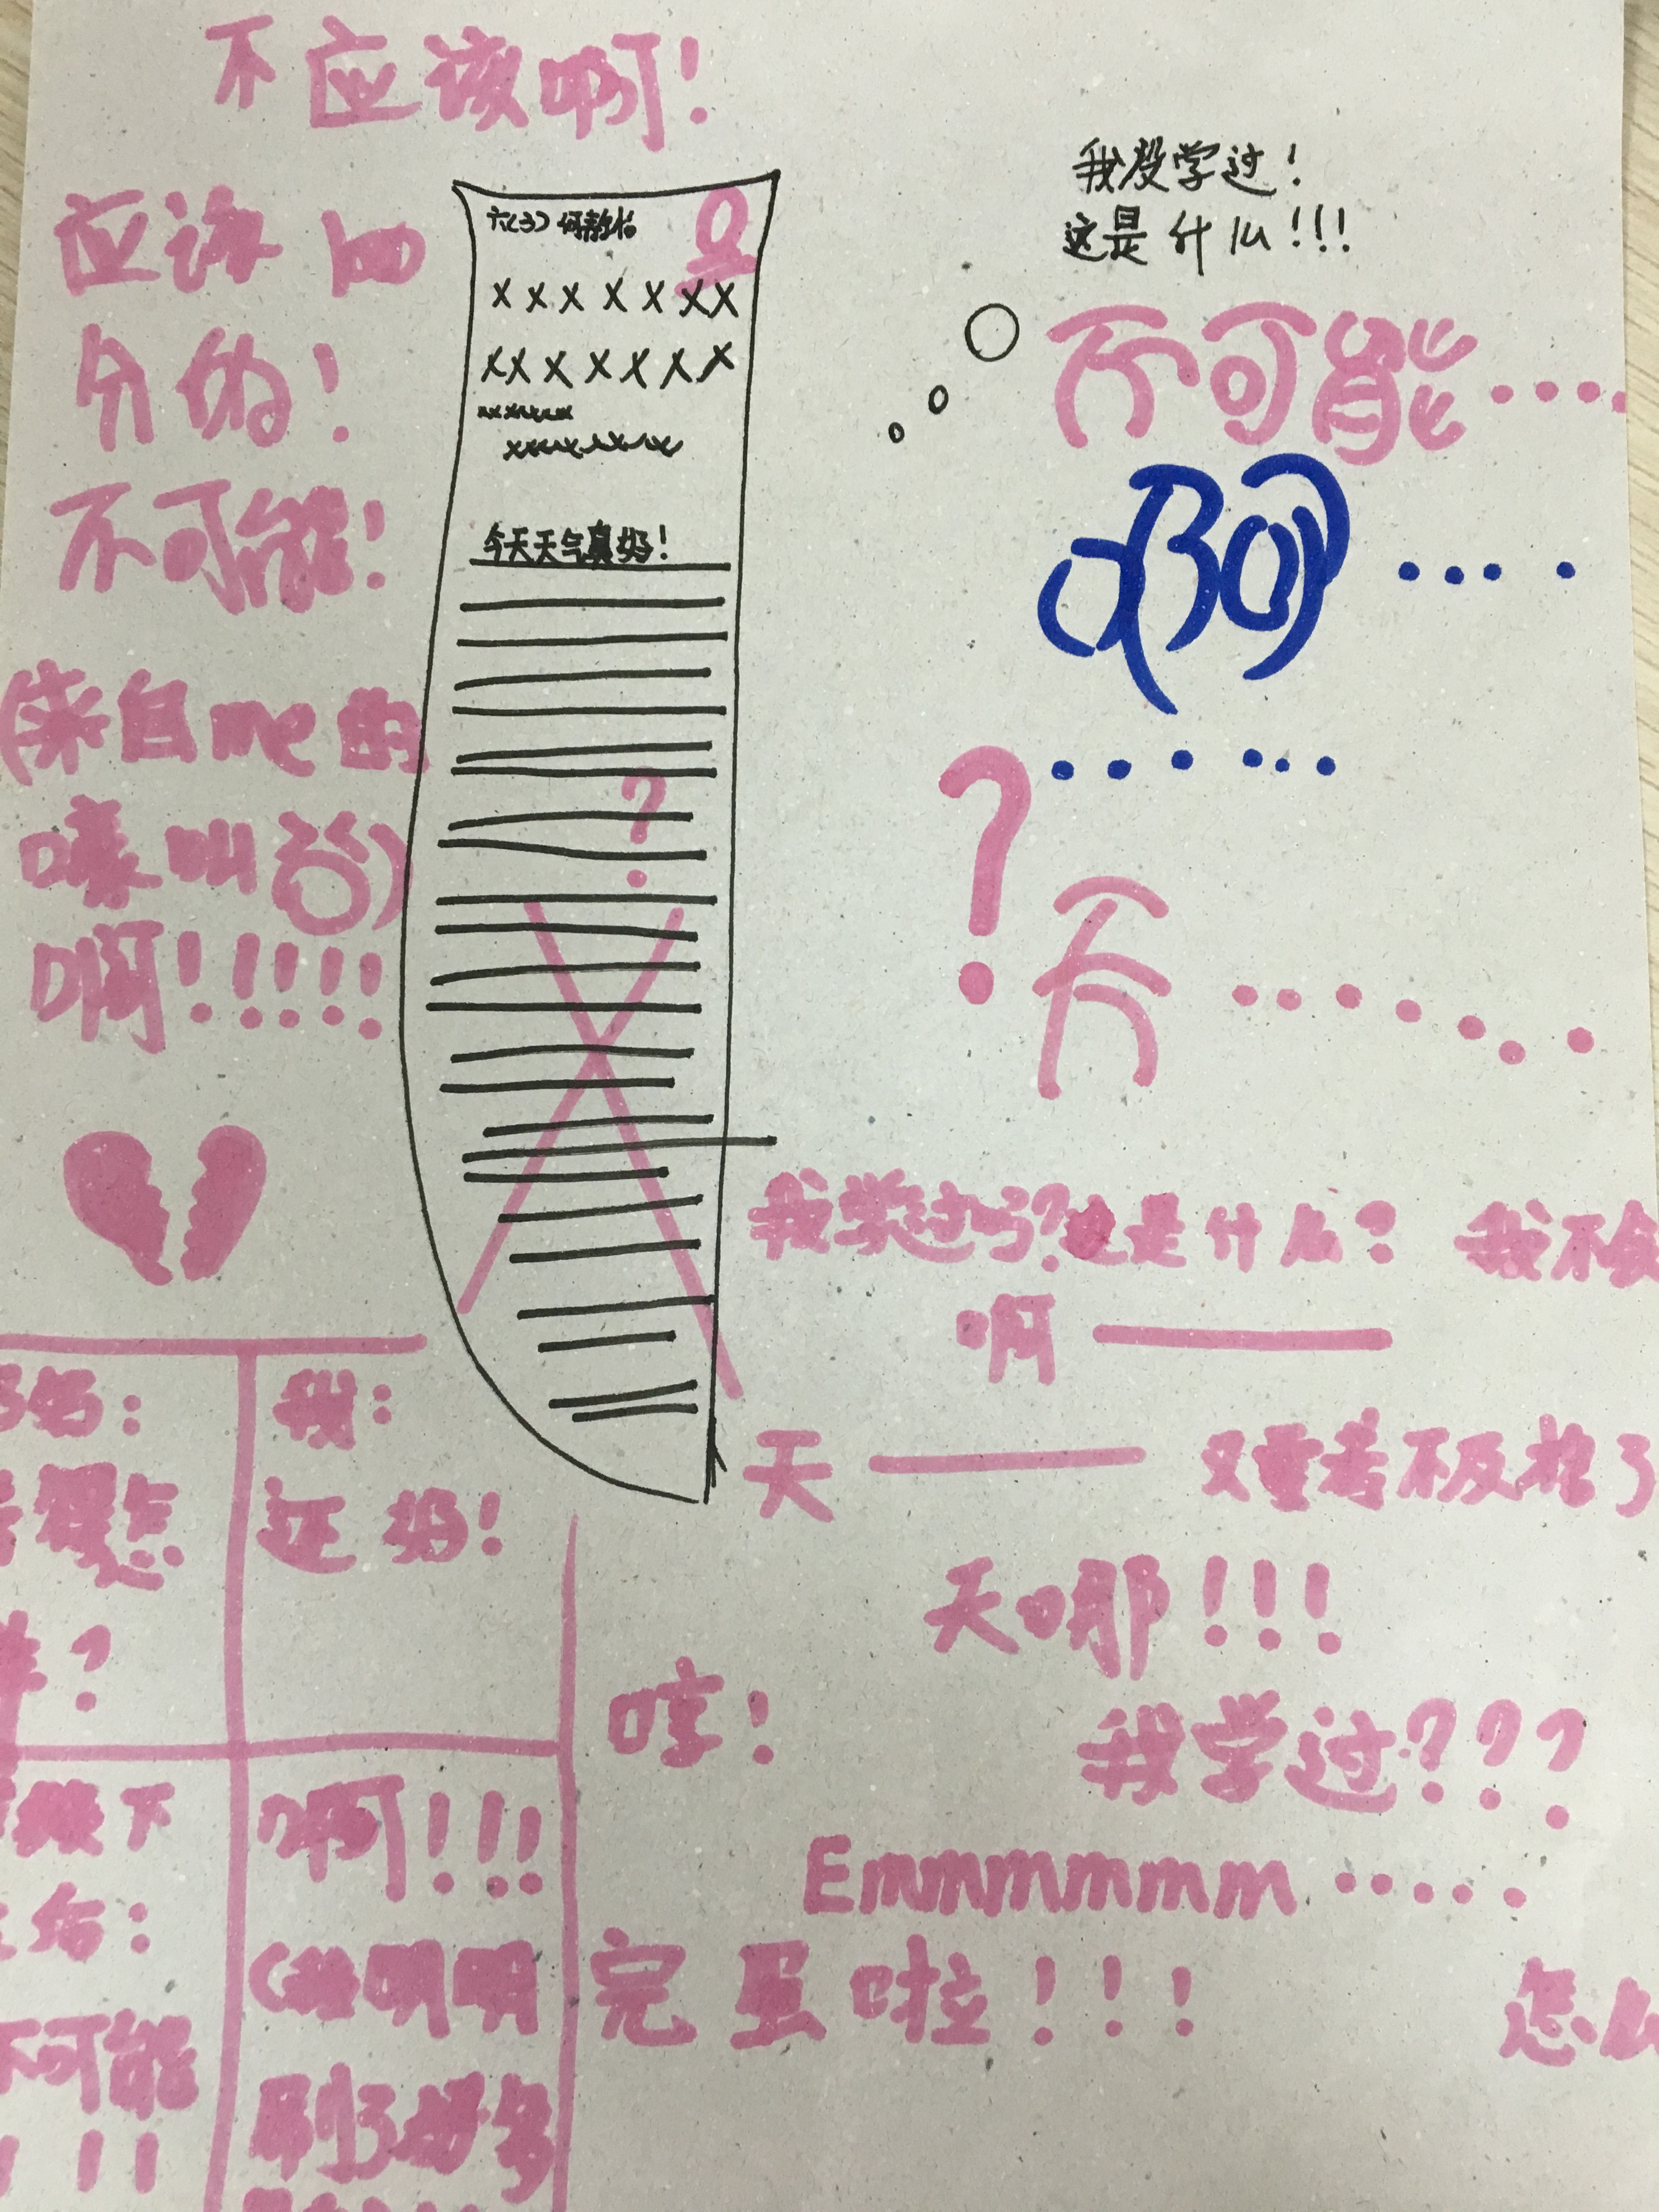 不应该啊！
应该100
分的！
不可能！
(来自me的
嚎叫)
啊！！！！！
六(3)
0
×××××××
×××××××
今天天气真好！
?
我没学过！
这是什么！！！
不可能....
啊....
......
?
不.......
我学过吗？这是什么？我不会
啊——
天——又重考不及格了
天哪！！！
哼！
我学过？？？
Emmmmmm.....
完蛋啦！！！
怎么
妈：
怎
样？
我：
还好！
下
给：
不可能
！！
啊！！！
明明
刷了好多